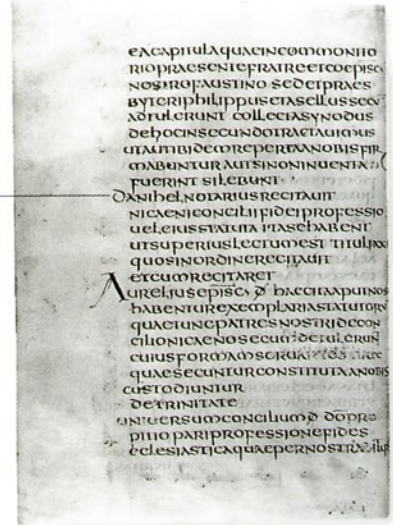 ea capitula quae in commonito
rio praesente fratre et coepisc
nostro faustino sed et praes
byteri philippus et asellus secu
adtulerunt collecta synodus
de hoc in secundo tractauimus
ut aut ibidem reperta a nobis fir
mabuntur aut si non inuenta
fuerint silebunt
danihel notarius recitauit
nicaeni concilii fidei professio
uel eius statuta ita se habent
ut superius lectum est tituli
quos in ordine recitauit
et cum recitaret
Aurelius episc d haec ita apud nos
habentur exemplaria statutoru
quae tunc patres nostri de con
cilio nicaeno secum detulerun
cuius formam
quae secuntur constituta a nobis
custodiuntur
de trinitate
uniuersum concilium d do pro
pitio pari professione fides
eclesiastica quae per nostra